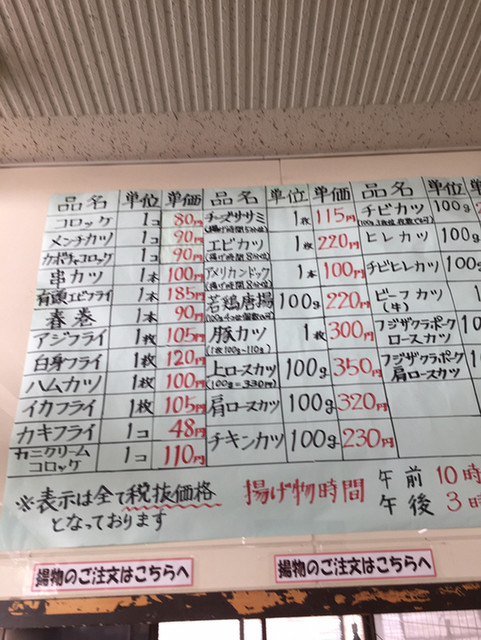 品名 単位 単価 品名 単位 単価 品名 単位
コロッケ 1コ 80円 チーズササミ 1枚 115円 チビカツ 100g
メンチカツ 1コ 90円 エビカツ 1枚 220円 ヒレカツ 100g
(揚げ時間8分位)
カボチャコロッケ 1コ 90円 アメリカンドック 1本 100円 チビヒレカツ 100g
串カツ 1本 100円 若鶏唐揚 100g 220円 ビーフカツ 100g
(牛)
有頭エビフライ 1本 185円 豚カツ 1枚 300円 フジザクラポーク
(1枚100g~110g)
ロースカツ
春巻 1本 90円 上ロースカツ 100g 350円 フジザクラポーク
(100g=330円)
肩ロースカツ
アジフライ 1枚 105円 肩ロースカツ 100g 320円
白身フライ 1枚 120円 チキンカツ 100g 230円
ハムカツ 1枚 100円
イカフライ 1枚 105円
カキフライ 1コ 48円
カニクリーム
コロッケ 1コ 110円
※表示は全て税抜価格
となっております
揚げ物時間 午前10時
午後3時
揚物のご注文はこちらへ
揚物のご注文はこちらへ